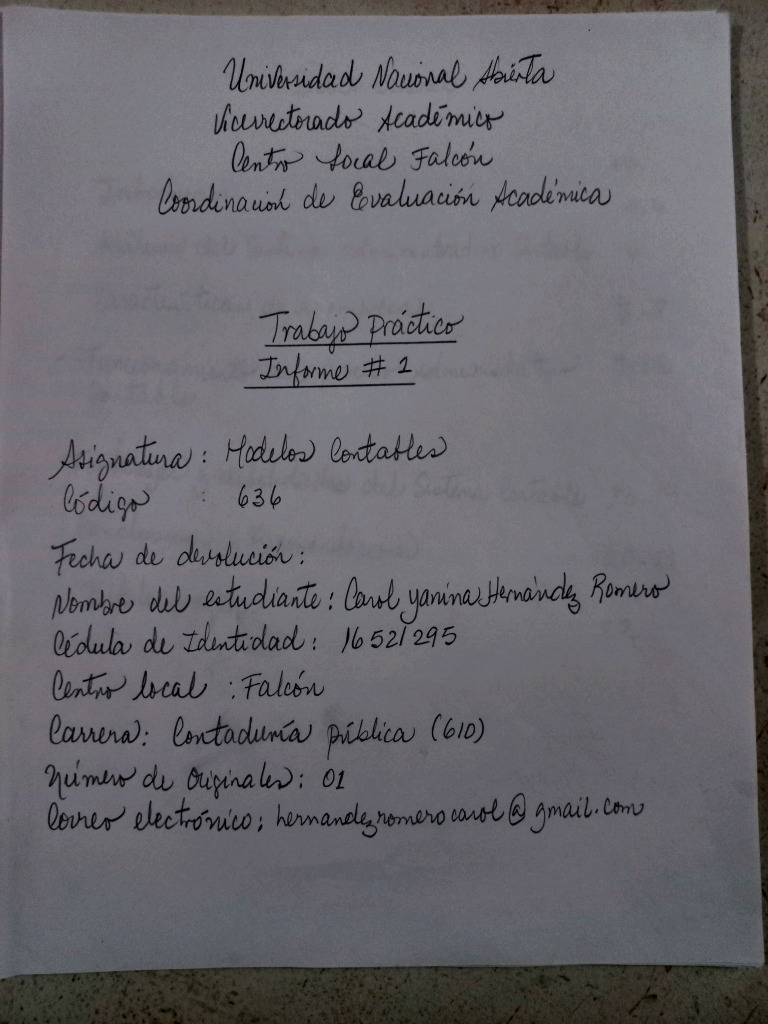 Universidad Nacional Abierta
Vicerrectorado Académico
Centro Local Falcón
Coordinación de Evaluación Académica
Trabajo Práctico
Informe # 1
Asignatura: Modelos Contables
Código : 636
Fecha de devolución:
Nombre del estudiante: Carol Yanina Hernández Romero
Cédula de Identidad: 16521295
Centro local : Falcón
Carrera: Contaduría Pública (610)
Número de originales: 01
Correo electrónico: hernandezromerocarol@gmail.com